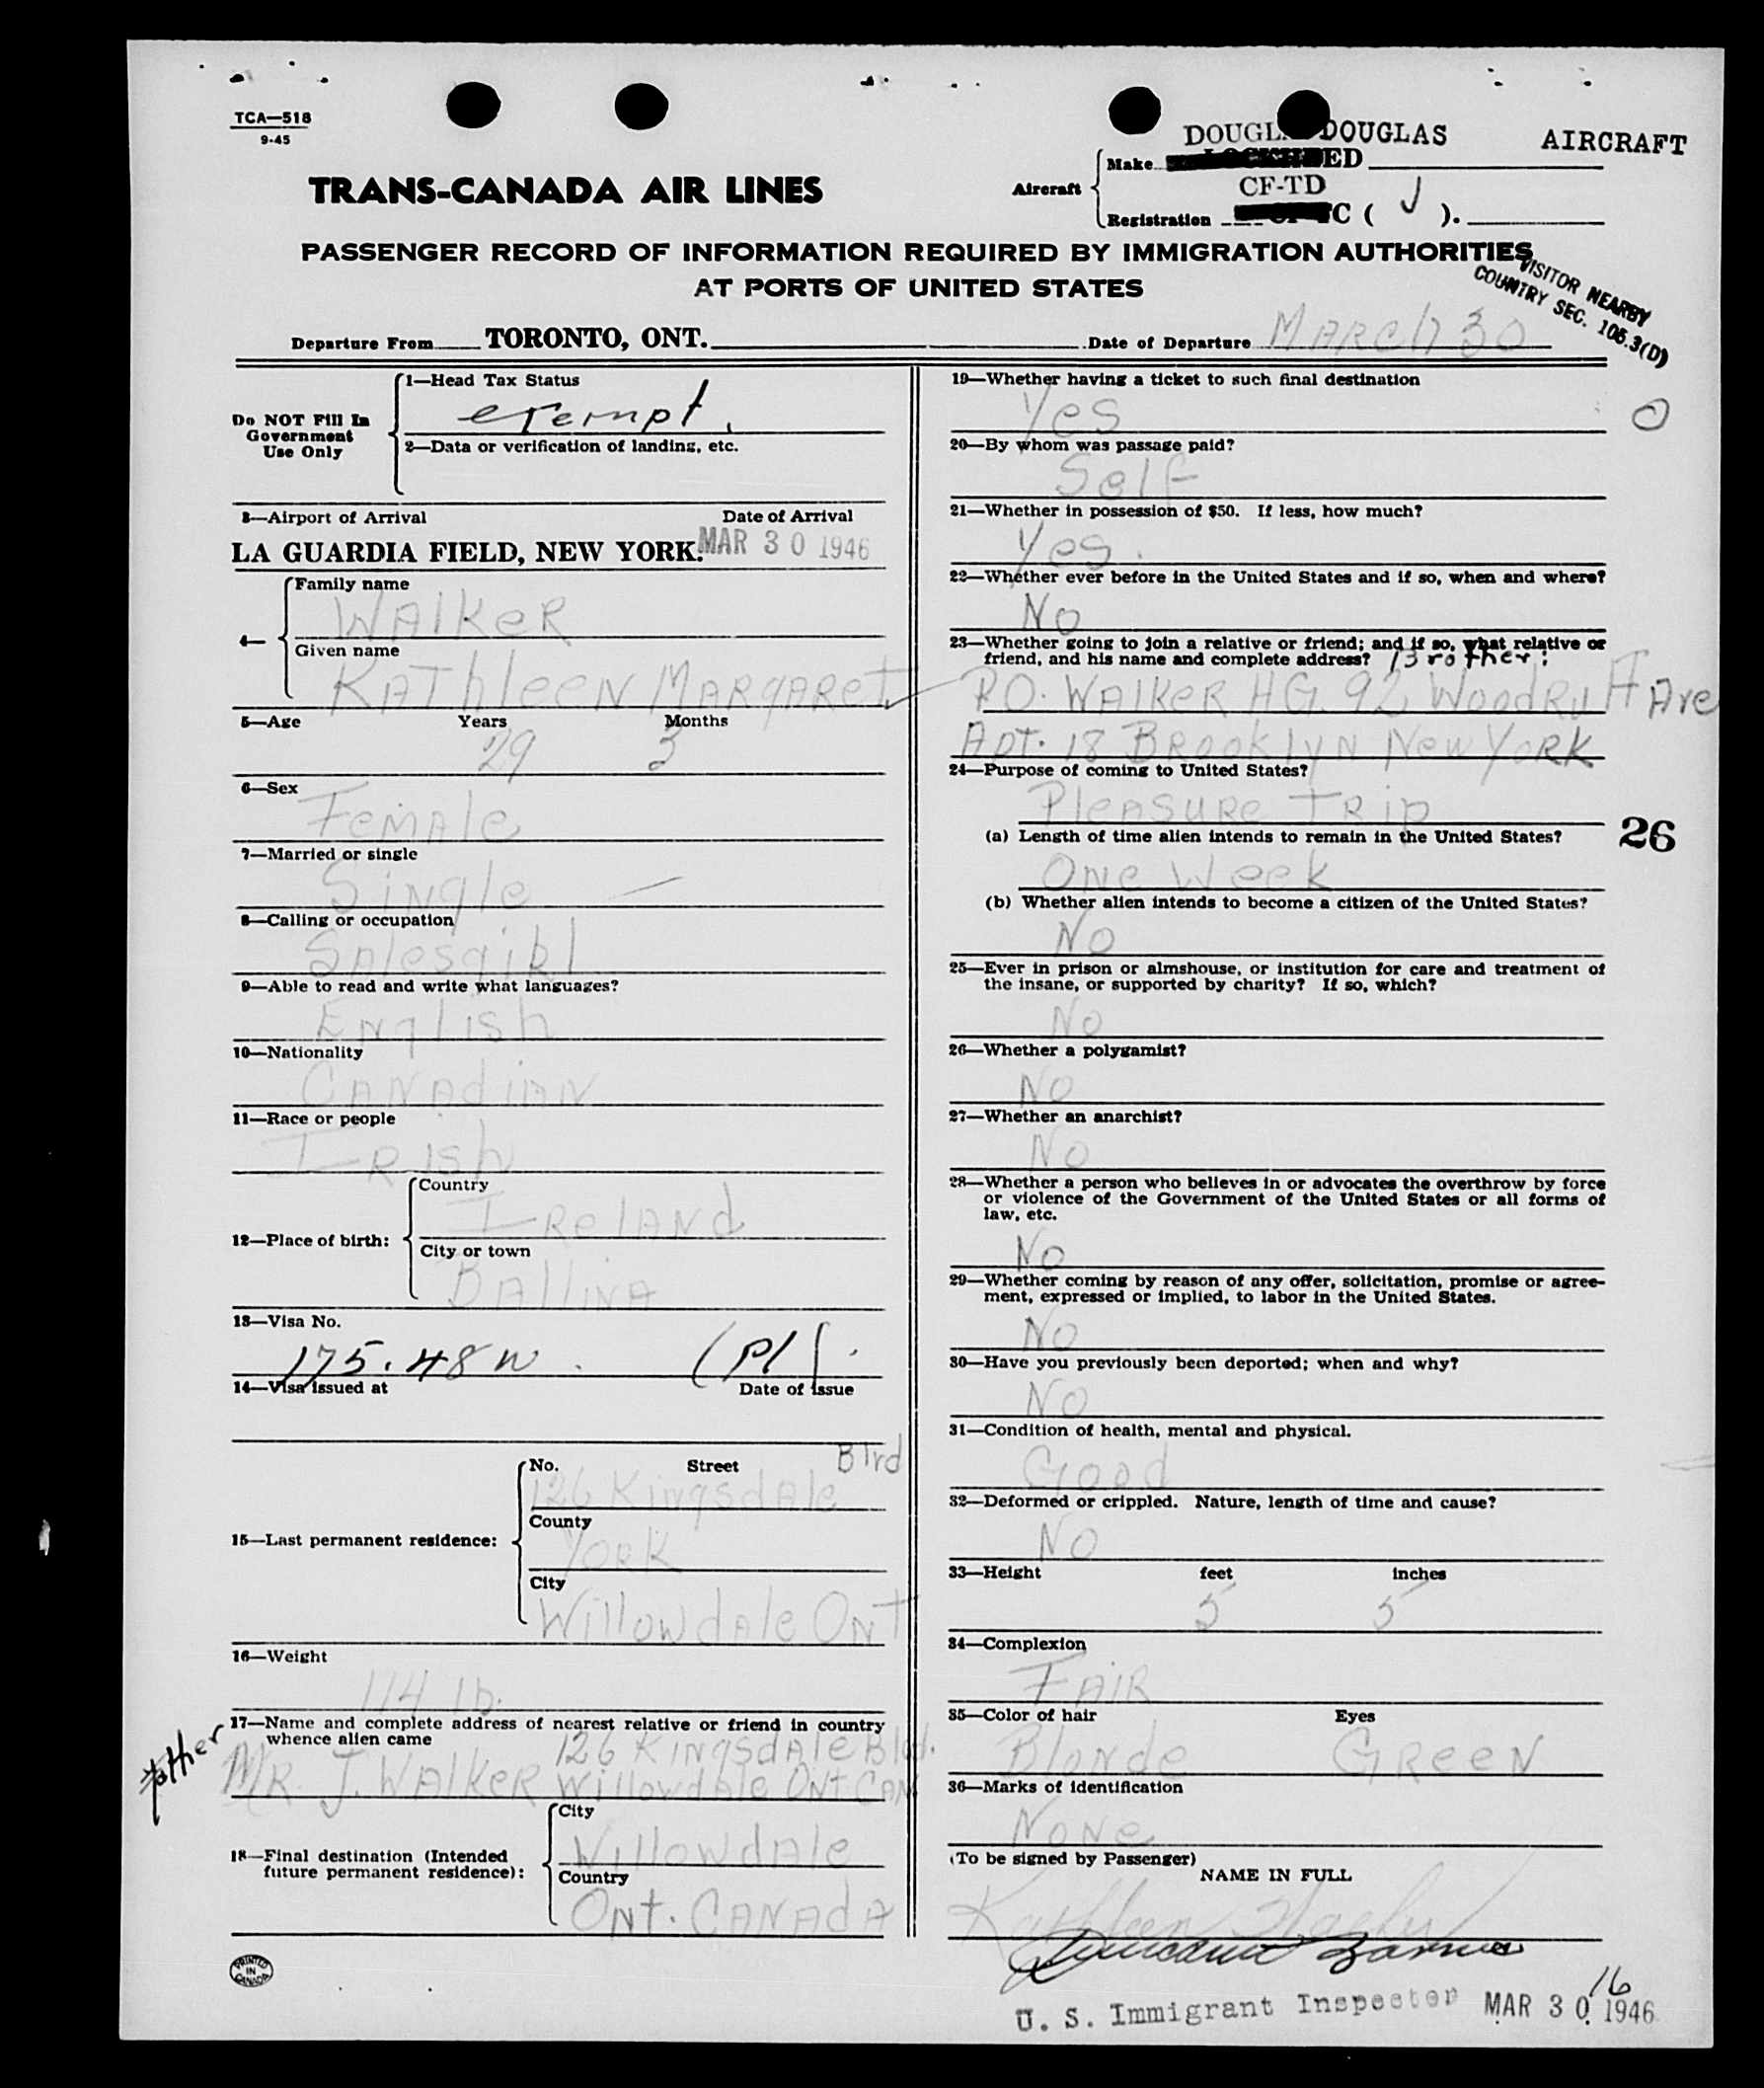 TCA—518
9-45
DOUGLAS DOUGLAS AIRCRAFT
Make ED
TRANS-CANADA AIR LINES
Aircraft
CF-TD
Registration C ( J ).
PASSENGER RECORD OF INFORMATION REQUIRED BY IMMIGRATION AUTHORITIES
AT PORTS OF UNITED STATES
VISITOR NEARBY
COUNTRY SEC. 105.3(D)
Departure From TORONTO, ONT. Date of Departure MARCH 30
Do NOT Fill In
Government
Use Only
1—Head Tax Status
exempt.
2—Data or verification of landing, etc.
3—Airport of Arrival Date of Arrival
LA GUARDIA FIELD, NEW YORK. MAR 30 1946
4—
Family name
WALKER
Given name
KATHLEEN MARGARET
5—Age Years Months
29 3
6—Sex
Female
7—Married or single
Single —
8—Calling or occupation
Salesgirl
9—Able to read and write what languages?
English
10—Nationality
Canadian
11—Race or people
Irish
12—Place of birth:
Country
Ireland
City or town
Ballina
13—Visa No.
175.48 W. (P1).
14—Visa issued at Date of issue
15—Last permanent residence:
No. Street Blvd
126 Kingsdale
County
York
City
Willowdale Ont
16—Weight
114 lb.
17—Name and complete address of nearest relative or friend in country
whence alien came
father
126 Kingsdale Blvd.
Mr. J. Walker Willowdale Ont Can
18—Final destination (Intended
future permanent residence):
City
Willowdale
Country
Ont. Canada
PRINTED
IN
CANADA
19—Whether having a ticket to such final destination
Yes
0
20—By whom was passage paid?
Self
21—Whether in possession of $50. If less, how much?
Yes.
22—Whether ever before in the United States and if so, when and where?
No
23—Whether going to join a relative or friend; and if so, what relative or
friend, and his name and complete address? Brother:
P.O. Walker H.G. 92 Woodruff Ave
Apt. 18 Brooklyn New York
24—Purpose of coming to United States?
Pleasure Trip
(a) Length of time alien intends to remain in the United States?
26
One Week
(b) Whether alien intends to become a citizen of the United States?
No
25—Ever in prison or almshouse, or institution for care and treatment of
the insane, or supported by charity? If so, which?
No
26—Whether a polygamist?
No
27—Whether an anarchist?
No
28—Whether a person who believes in or advocates the overthrow by force
or violence of the Government of the United States or all forms of
law, etc.
No
29—Whether coming by reason of any offer, solicitation, promise or agree-
ment, expressed or implied, to labor in the United States.
No
30—Have you previously been deported; when and why?
No
31—Condition of health, mental and physical.
Good
32—Deformed or crippled. Nature, length of time and cause?
No
33—Height feet inches
5 5
34—Complexion
Fair
35—Color of hair Eyes
Blonde Green
36—Marks of identification
None
(To be signed by Passenger)
NAME IN FULL
Kathleen Walker
16
U. S. Immigrant Inspector MAR 30 1946